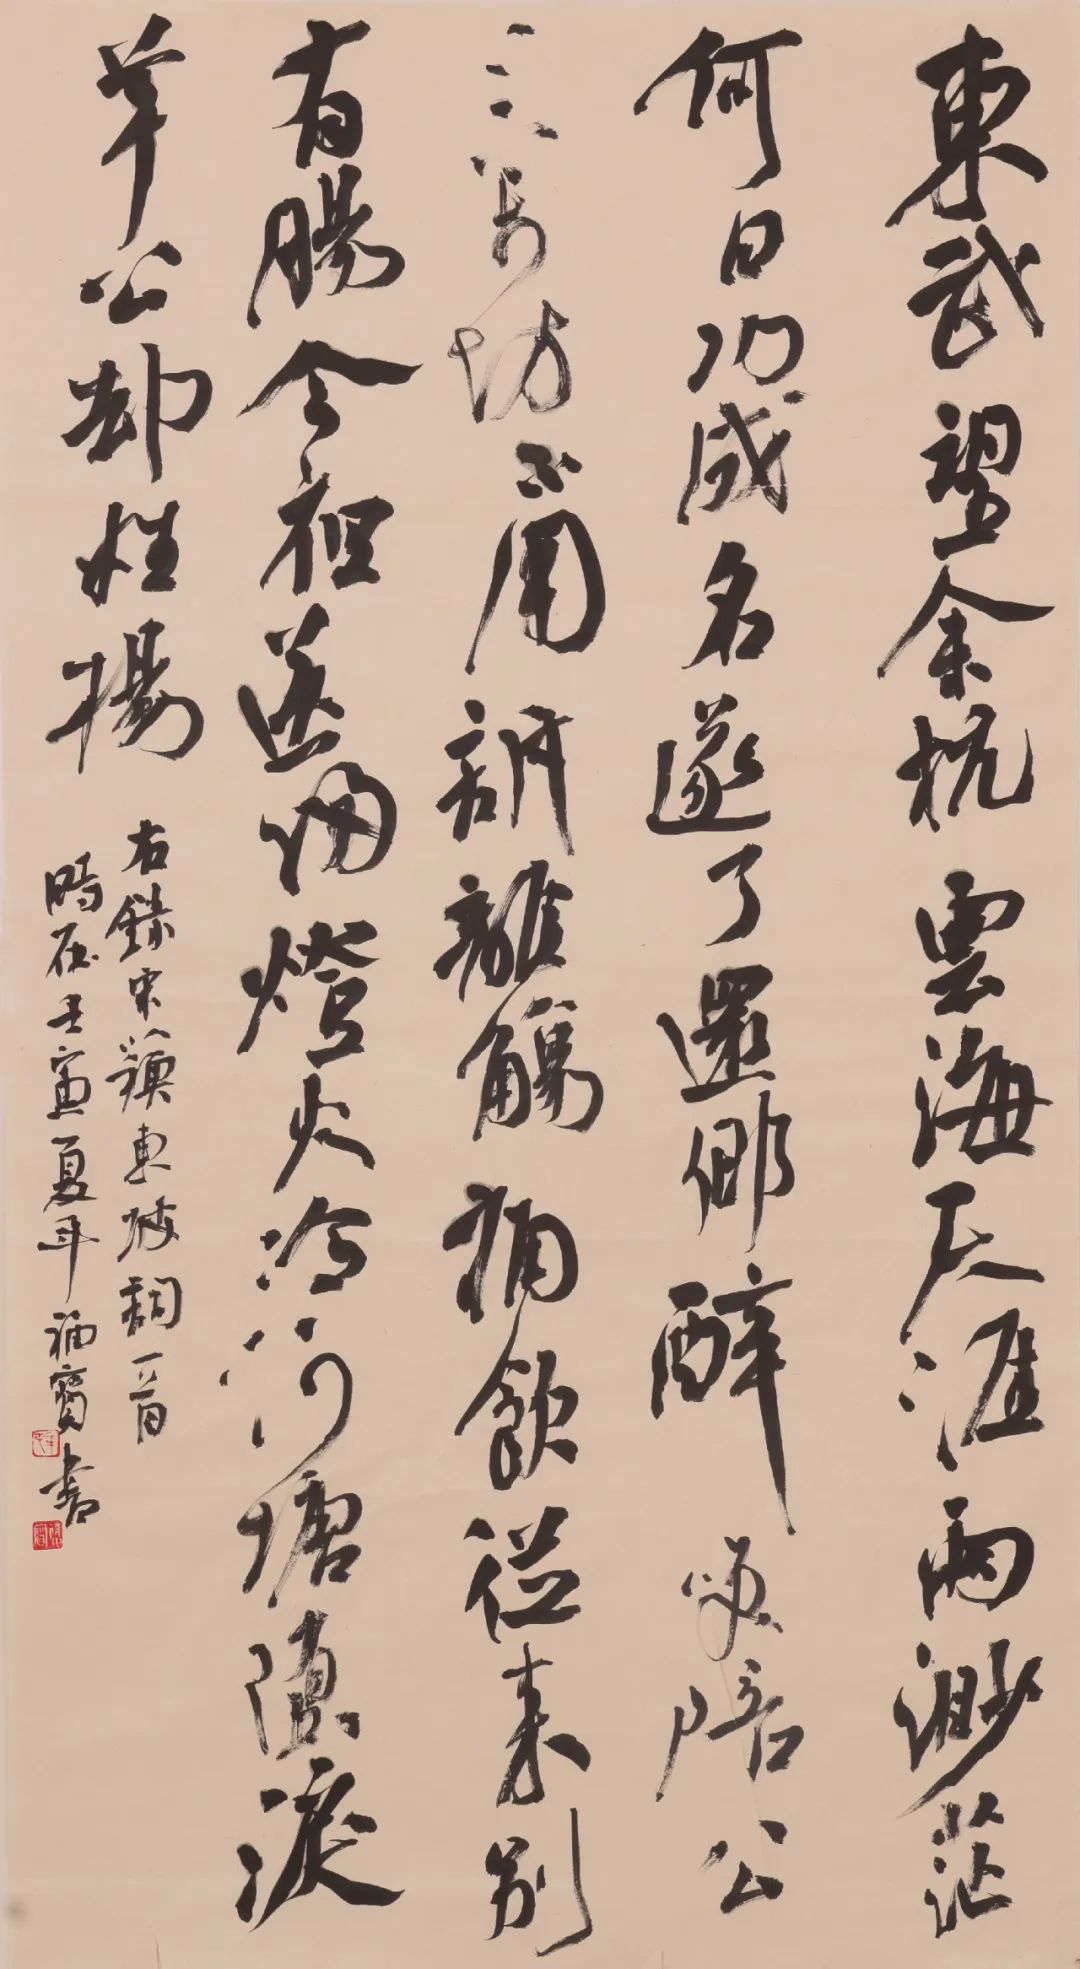 東武望余杭雲海天涯兩渺茫
何日功成名遂了還鄉醉笑陪公
三萬场不用訴離觴痛飲從來別
有腸今夜送歸燈火冷河塘墮淚
羊公却姓楊
右錄宋蘇東坡詞一首
時在壬寅夏年福寶書